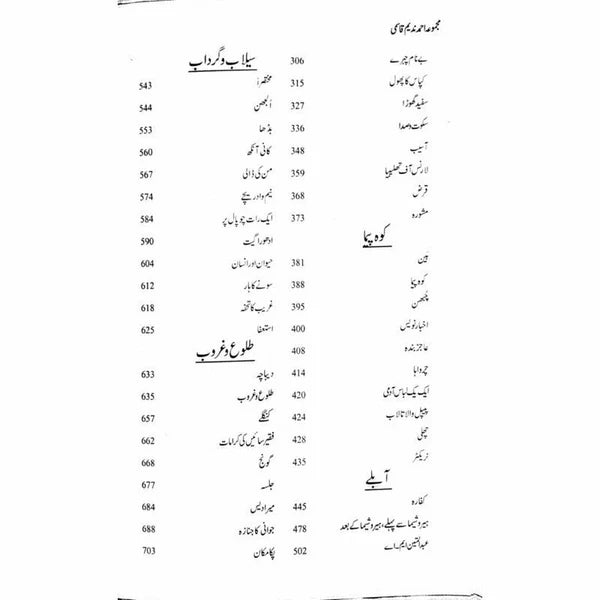 مجموعہ احمد ندیم قاسمی
بے نام چہرے 306
کپاس کا پھول 315
سفید گھوڑا 327
سکوت و صدا 336
آسیب 348
لارنس آف تھلیبیا 359
قرض 368
مشورہ 373
کوہ پیما
بین 381
کوہ پیما 388
پاچھن 395
اخبار نویس 400
عاجز بندہ 408
چرواہا 414
ایک یک لباس آدمی 420
پیپل والا تالاب 424
چھلی 428
ٹریکٹر 435
آبلے
کفارہ 445
ہیروشیما سے پہلے، ہیروشیما کے بعد 478
عبدالمتین ایم۔اے 502
سیلاب و گرداب
مختصراً 543
اُلجھن 544
بڈھا 553
کانی آنکھ 560
من کی ڈالی 567
نیم وا دریچے 574
ایک رات چوپال پر 584
ادھورا گیت 590
حیوان اور انسان 604
سونے کا ہار 612
غریب کا تحفہ 618
استعفا 625
طلوع و غروب
دیباچہ 633
طلوع و غروب 635
کنگلے 657
فقیر سائیں کی کرامات 662
گونج 668
جلسہ 677
میرا دیس 684
جوانی کا جنازہ 688
پکا مکان 703